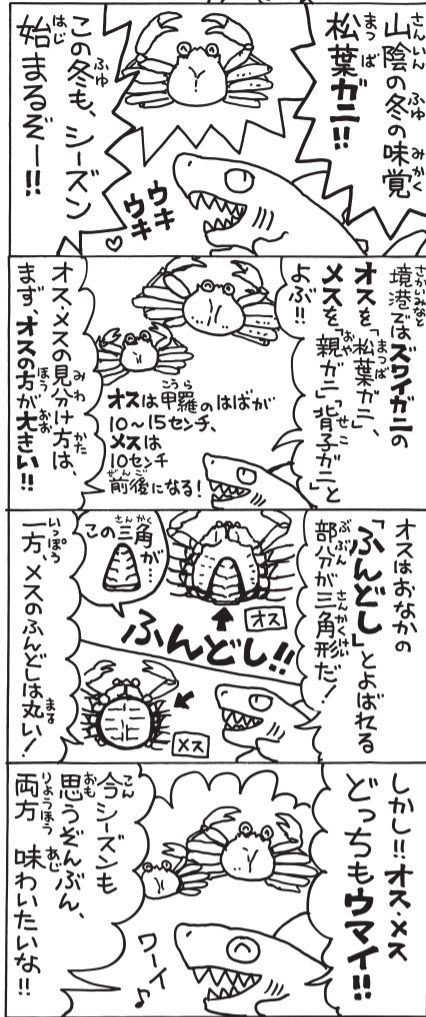 山陰の冬の味覚
松葉ガニ!!
ウキ
ウキ
この冬も、シーズン
始まるぞー!!
境港ではズワイガニの
オスを「松葉ガニ」、
メスを「親ガニ」「背子ガニ」と
よぶ!!
オスは甲羅のはばが
10〜15センチ、
メスは
10センチ
前後になる!
オス・メスの見分け方は、
まず、オスの方が大きい!!
オスはおなかの
「ふんどし」とよばれる
部分が三角形だ!
オス
この三角が…
ふんどし!!
メス
一方、メスのふんどしは丸い!
しかし!!オス・メス
どっちもウマイ!!
ワーイ♪
今シーズンも
思うぞんぶん、
両方 味わいたいな!!